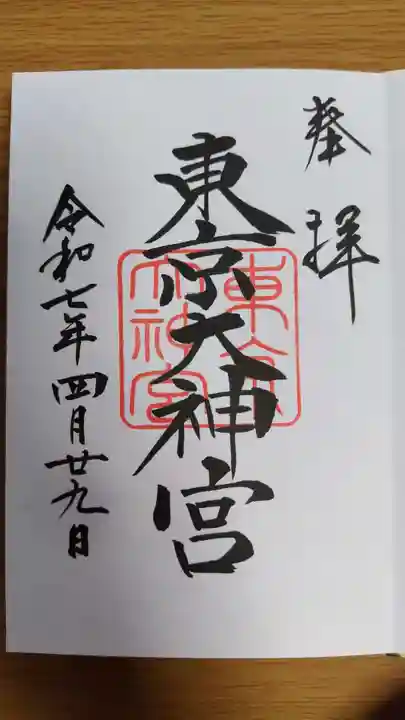 奉拝
東京大神宮
東京大神宮
令和七年四月廿九日